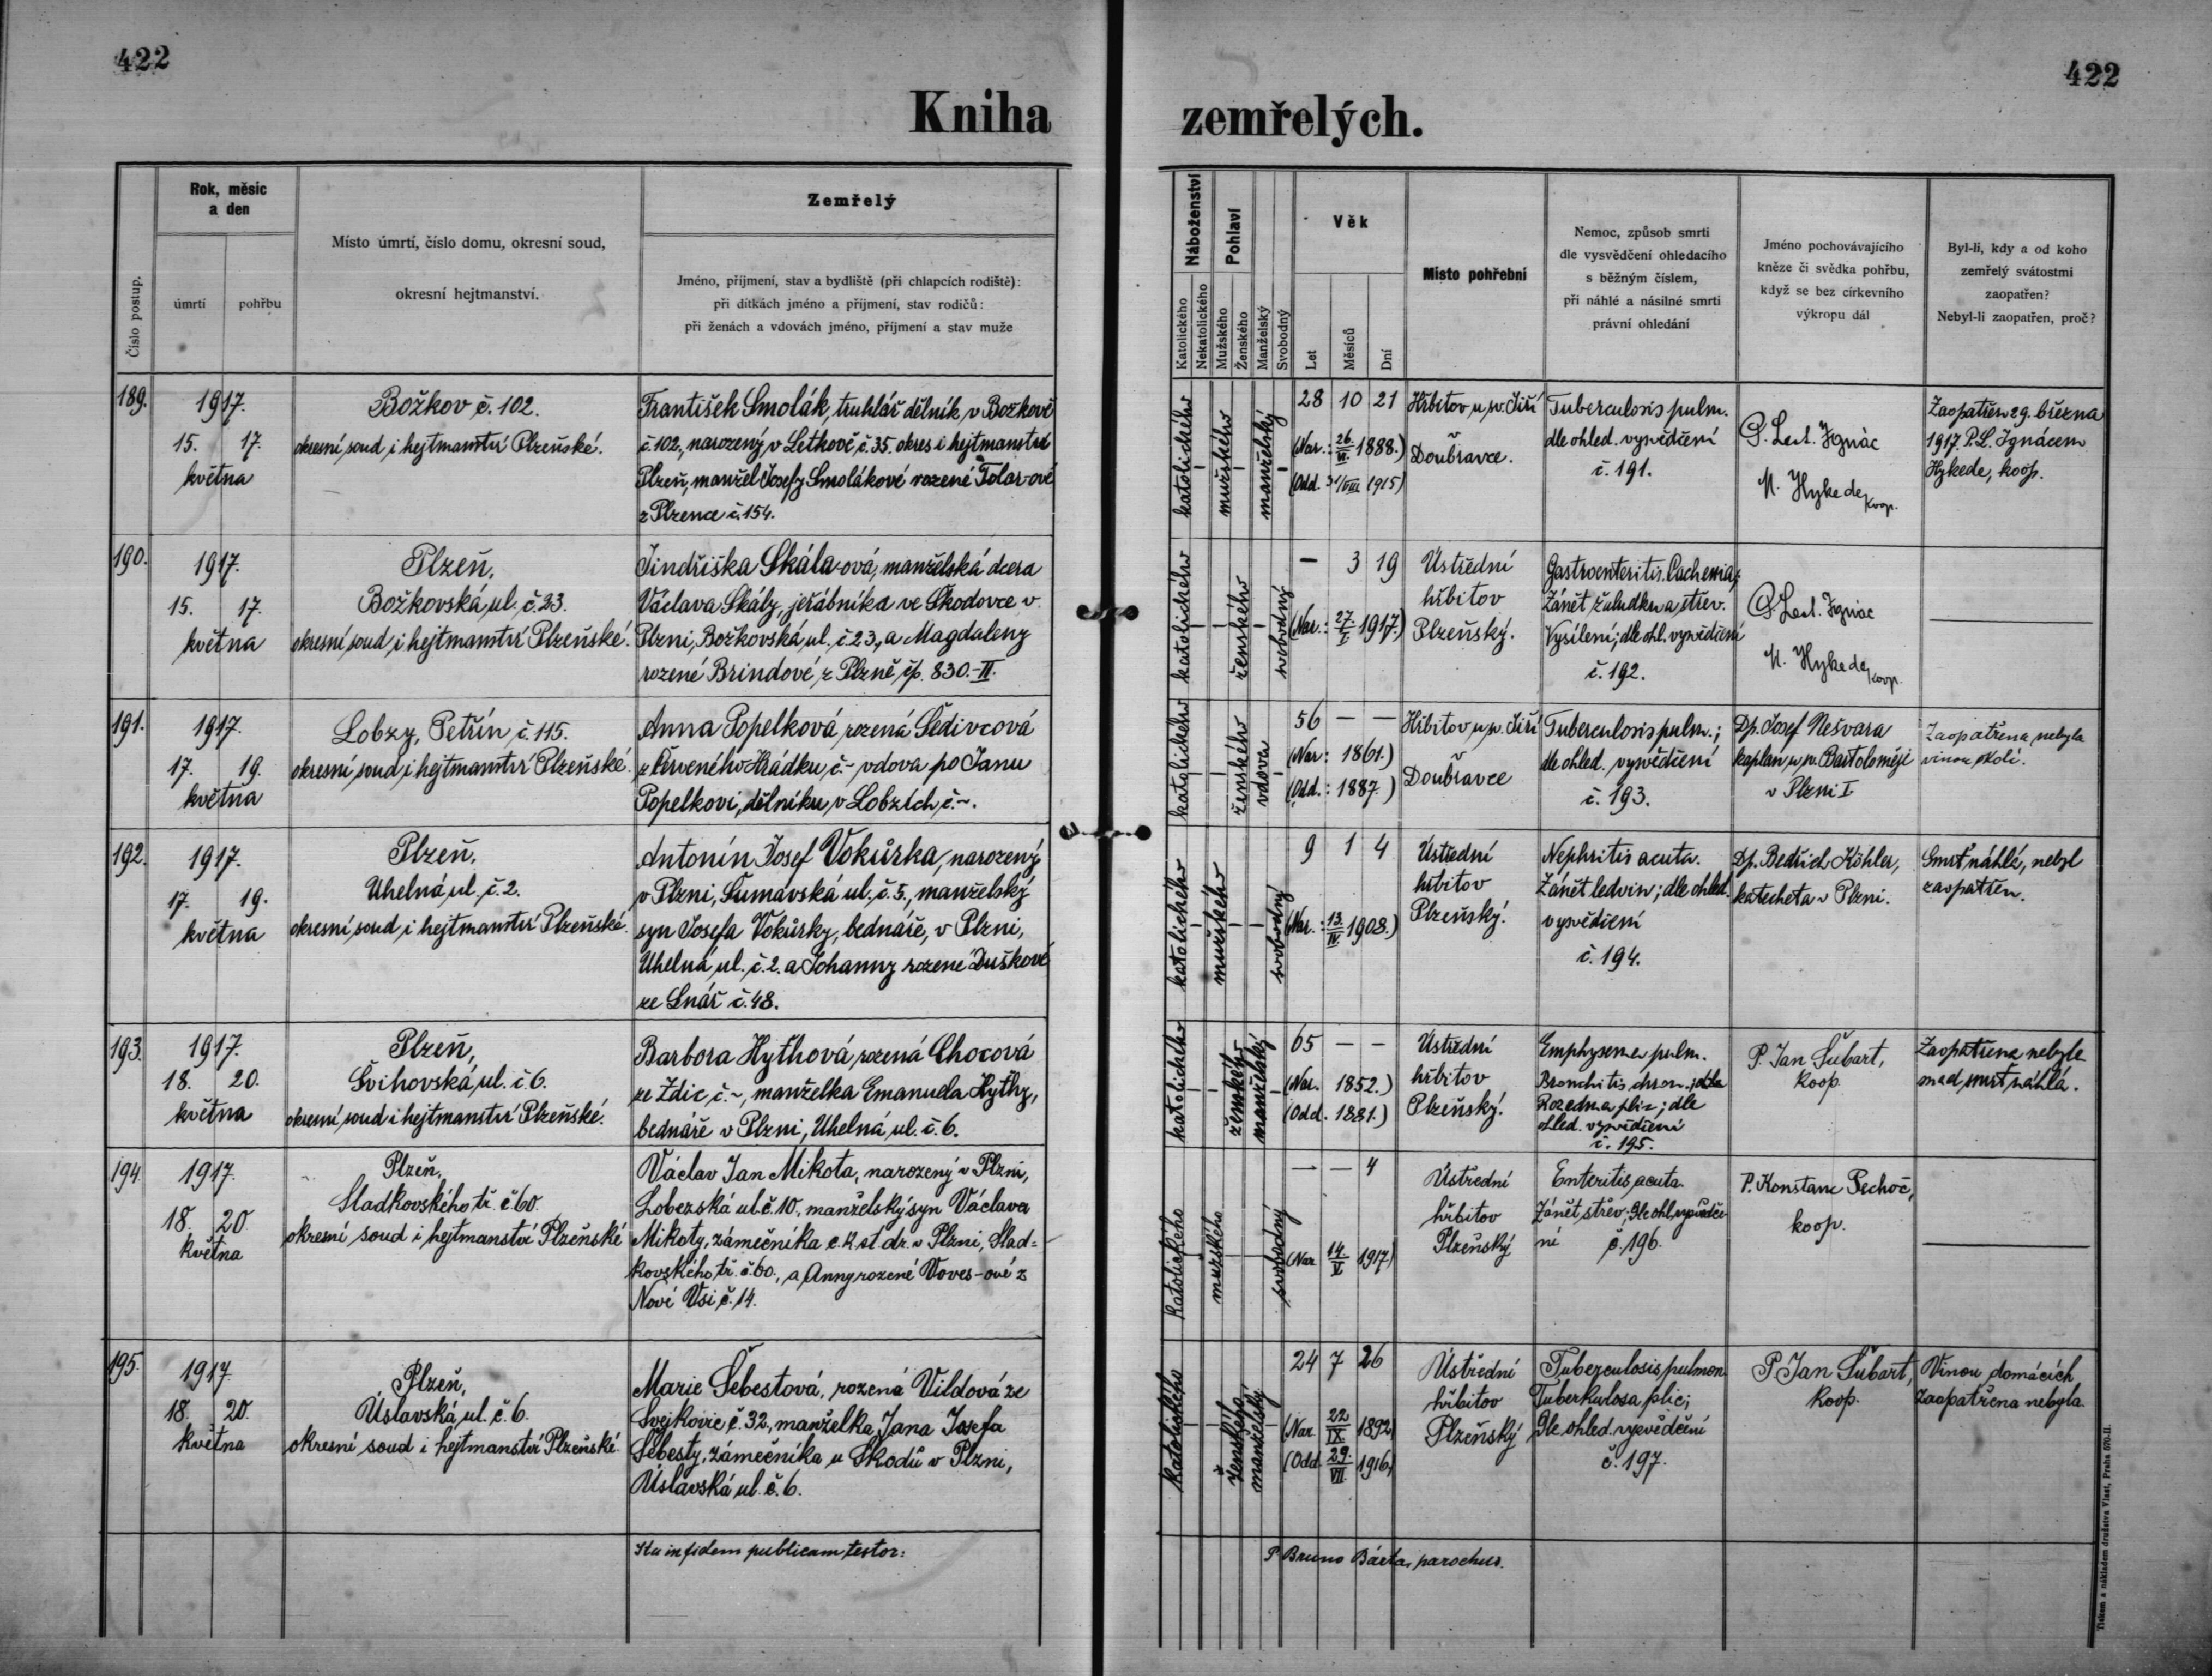 422
422
Kniha
zemřelých.
Číslo postup.
Rok, měsíc
a den
úmrtí
pohřbu
Místo úmrtí, číslo domu, okresní soud,
okresní hejtmanství.
Zemřelý
Jméno, příjmení, stav a bydliště (při chlapcích rodiště):
při dítkách jméno a příjmení, stav rodičů:
při ženách a vdovách jméno, příjmení a stav muže
Náboženství
Katolického
Nekatolického
Pohlaví
Mužského
Ženského
Manželský
Svobodný
Věk
Let
Měsíců
Dní
Místo pohřební
Nemoc, způsob smrti
dle vysvědčení ohledacího
s běžným číslem,
při náhlé a násilné smrti
právní ohledání
Jméno pochovávajícího
kněze či svědka pohřbu,
když se bez církevního
výkropu dál
Byl-li, kdy a od koho
zemřelý svátostmi
zaopatřen?
Nebyl-li zaopatřen, proč?
189.
1917.
15. 17.
května
Božkov č. 102.
okresní soud i hejtmanství Plzeňské.
František Smolák, truhlář dělník v Božkově
č. 102., narozený v Letkově č. 35. okres i hejtmanství
Plzeň, manžel Josefy Smolákové rozené Tolar-ové
z Plzence č. 154.
katolického
mužského
manželský
28 10 21
(Nar.: 26/VI. 1888.)
(Odd. 31/VIII 1915)
Hřbitov u sv. Jiří
v
Doubravce.
Tuberculosis pulm.
dle ohled. vysvědčení
č. 191.
P. Ignác
M. Hykede,
koop.
Zaopatřen 29. března
1917. P. L. Ignácem
Hykede, koop.
190.
1917.
15. 17.
května
Plzeň,
Božkovská ul. č. 23.
okresní soud i hejtmanství Plzeňské.
Jindřiška Skála-ová, manželská dcera
Václava Skály, jeřábníka ve Škodovce v
Plzni, Božkovská ul. č. 23., a Magdaleny
rozené Brindové z Plzně čp. 830.-II.
katolického
ženského
svobodný
— 3 19
(Nar.: 27/I. 1917.)
Ústřední
hřbitov
Plzeňský.
Gastroenteritis. Cachexia;
Zánět žaludku a střev.
Vysílení; dle ohl. vysvědčení
č. 192.
P. Ignác
M. Hykede,
koop.
191.
1917.
17. 19.
května
Lobzy, Petřín č. 115.
okresní soud i hejtmanství Plzeňské.
Anna Popelková, rozená Šedivcová
z Červeného Hrádku, č.~ vdova po Janu
Popelkovi, dělníku v Lobzích, č.~.
katolického
ženského
vdova
56 — —
(Nar: 1861.)
(Odd.: 1887.)
Hřbitov u sv. Jiří
v
Doubravce
Tuberculosis pulm.;
dle ohled. vysvědčení
č. 193.
Dp. Josef Nešvara
kaplan u sv. Bartoloměje
v Plzni I.
Zaopatřena nebyla
vinou okolí.
192.
1917.
17. 19.
května
Plzeň,
Uhelná ul. č. 2.
okresní soud i hejtmanství Plzeňské.
Antonín Josef Vokůrka, narozený
v Plzni, Šumavská ul. č. 5., manželský
syn Josefa Vokůrky, bednáře, v Plzni,
Uhelná ul. č. 2. a Johanny rozené Duškové
ze Lnář č. 48.
katolického
mužského
svobodný
9 1 4
(Nar.: 13/IV. 1908.)
Ústřední
hřbitov
Plzeňský.
Nephritis acuta.
Zánět ledvin; dle ohled.
vysvědčení
č. 194.
Dp. Bedřich Köhler,
katecheta v Plzni.
Smrt náhlá, nebyl
zaopatřen.
193.
1917.
18. 20.
května
Plzeň,
Švihovská ul. č. 6.
okresní soud i hejtmanství Plzeňské.
Barbora Hythová, rozená Chocová
ze Zdic, č.~, manželka Emanuela Hythy,
bednáře v Plzni, Uhelná ul. č. 6.
katolického
ženského
manželský
65 — —
(Nar. 1852.)
(Odd. 1881.)
Ústřední
hřbitov
Plzeňský.
Emphysema pulm.
Bronchitis chron.;
Rozedma plic; dle
ohled. vysvědčení
č. 195.
P. Jan Šubart,
koop.
Zaopatřena nebyla
snad smrt náhlá.
194.
1917.
18. 20.
května
Plzeň,
Sladkovského tř. č. 60.
okresní soud i hejtmanství Plzeňské
Václav Jan Mikota, narozený v Plzni,
Lobezská ul. č. 10., manželský syn Václava
Mikoty, zámečníka c. k. st. dr. v Plzni, Slad=
kovského tř. č. 60., a Anny rozené Voves-ové z
Nové Vsi č. 14.
katolického
mužského
svobodný
— — 4
(Nar. 14/V 1917)
Ústřední
hřbitov
Plzeňský
Enteritis acuta.
Zánět střev; Dle ohl. vysvědče-
ní č. 196.
P. Konstanc Pechoč,
koop.
195.
1917.
18. 20.
května
Plzeň,
Úslavská ul. č. 6.
okresní soud i hejtmanství Plzeňské
Marie Šebestová, rozená Vildová ze
Svejkovic č. 32., manželka Jana Josefa
Šebesty, zámečníka u Škodů v Plzni,
Úslavská ul. č. 6.
katolického
ženského
manželský
24 7 26
(Nar. 22/IX. 1892)
(Odd. 29./VII. 1916)
Ústřední
hřbitov
Plzeňský
Tuberculosis pulmon.
Tuberkulosa plic;
Dle ohled. vysvědčení
č. 197.
P. Jan Šubart,
koop.
Vinou domácích
zaopatřena nebyla.
Ita in fidem publicam testor:
P. Bruno Bárta, parochus.
Tiskem a nákladem družstva Vlast, Praha 570-II.